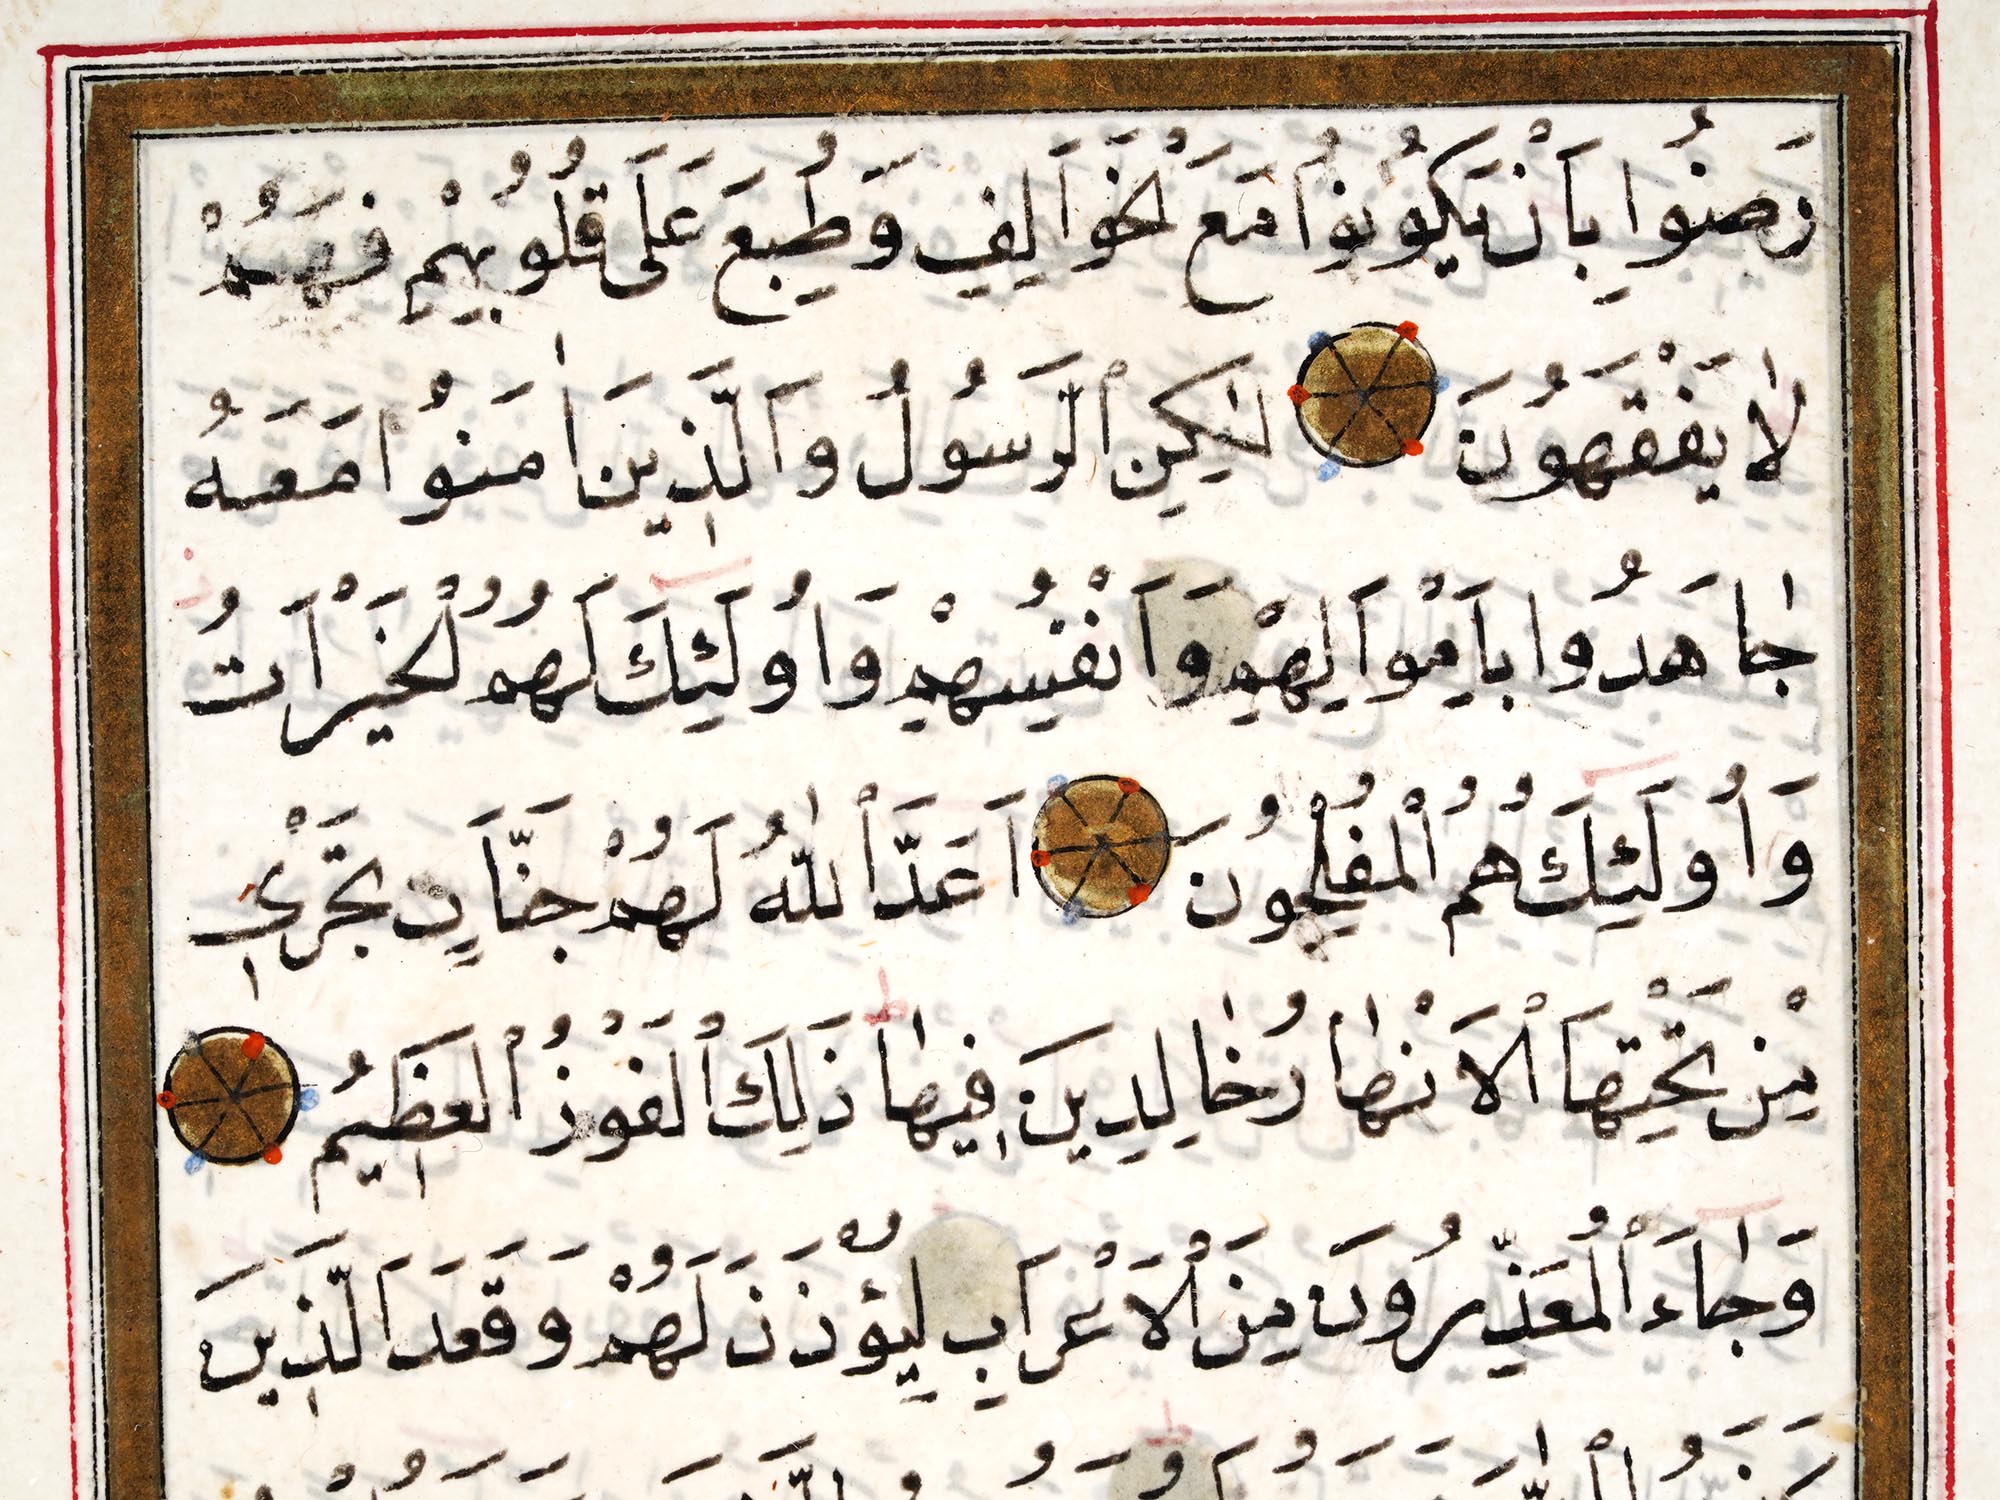 رَضُوا بِاَنْ يَكُونُوا مَعَ الْخَوَالِفِ وَطُبِعَ عَلَى قُلُوبِهِمْ فَهُمْ
لَا يَفْقَهُونَ لٰكِنِ الرَّسُولُ وَالَّذِينَ اٰمَنُوا مَعَهُ
جَاهَدُوا بِاَمْوَالِهِمْ وَاَنْفُسِهِمْ وَاُولَئِكَ لَهُمُ الْخَيْرَاتُ
وَاُولَئِكَ هُمُ الْمُفْلِحُونَ اَعَدَّ اللّٰهُ لَهُمْ جَنَّاتٍ تَجْرِى
مِنْ تَحْتِهَا الْاَنْهَارُ خَالِدِينَ فِيهَا ذَلِكَ الْفَوْزُ الْعَظِيمُ
وَجَاءَ الْمُعَذِّرُونَ مِنَ الْاَعْرَابِ لِيُؤْذَنَ لَهُمْ وَقَعَدَ الَّذِينَ